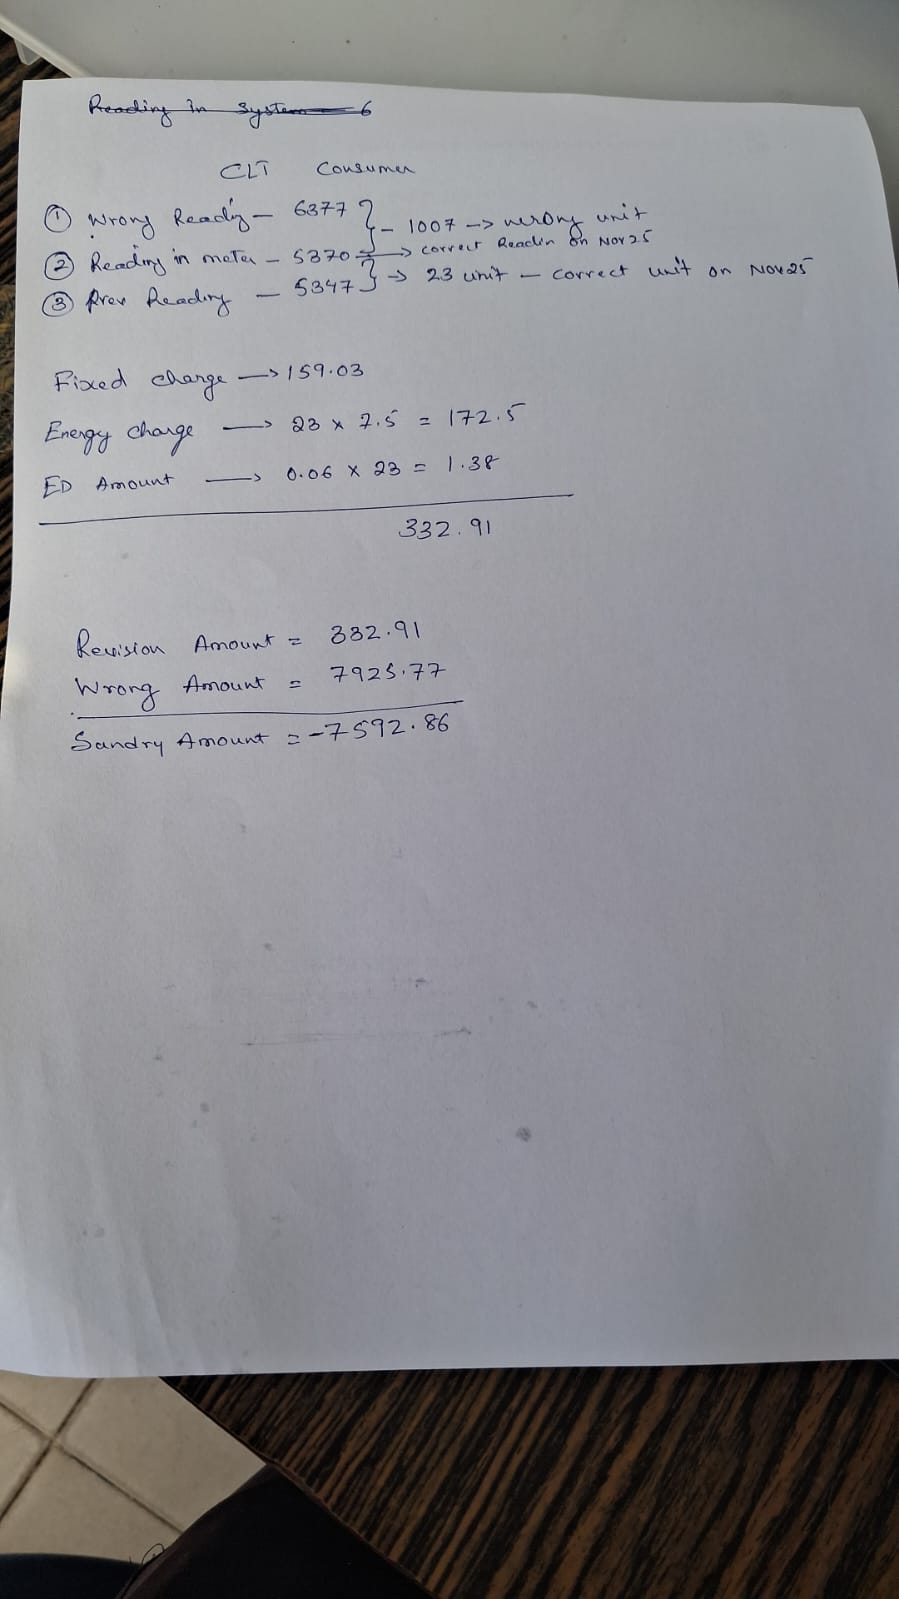 Reading in System 6
CLT Consumer
① Wrong Readig - 6377 } - 1007 -> wrong unit
② Reading in meter - 5370 -> correct Readin on Nov 25
③ Prev Reading - 5347 } -> 23 unit - correct unit on Nov 25
Fixed charge -> 159.03
Energy charge -> 23 x 7.5 = 172.5
ED Amount -> 0.06 x 23 = 1.38
332.91
Revision Amount = 332.91
Wrong Amount = 7925.77
Sandry Amount = -7592.86